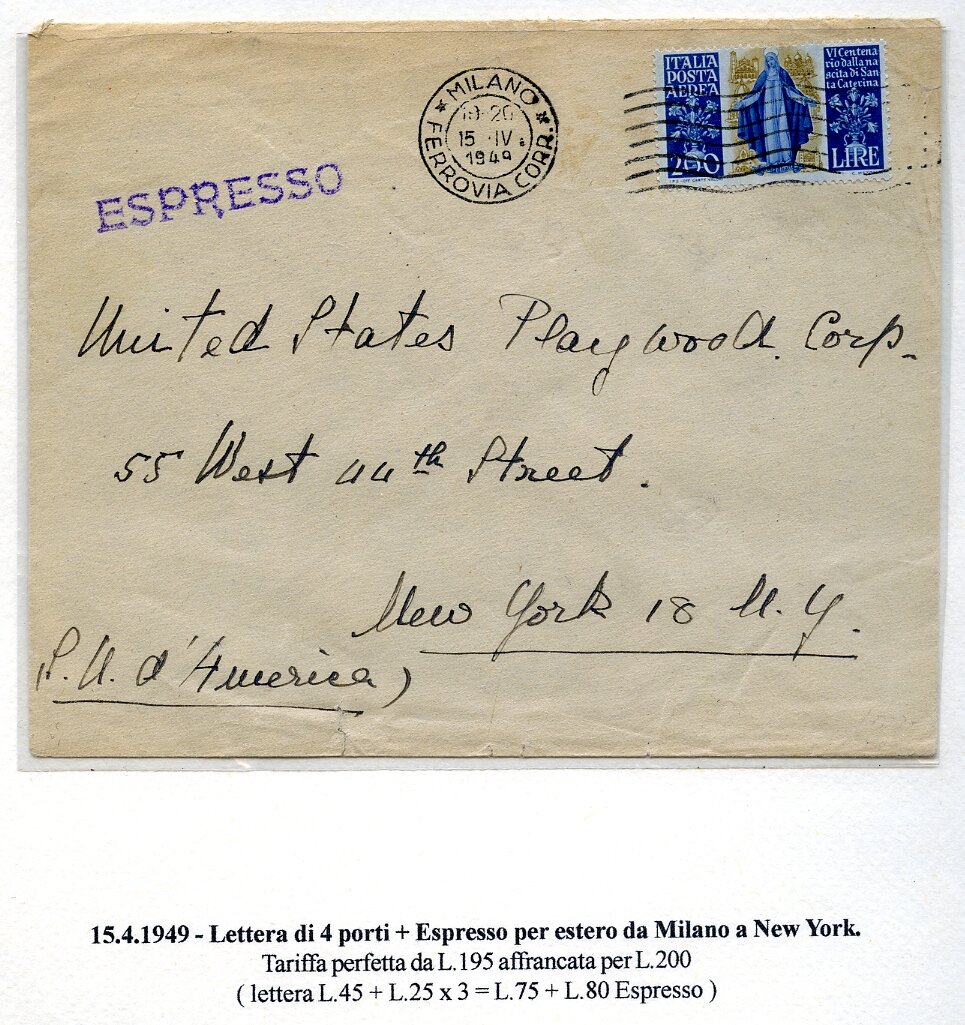 MILANO
19-20
15 · IV.
1949
FERROVIA CORR.
ITALIA
POSTA
AEREA
200
VI Centena
rio dalla na
scita di San
ta Caterina
LIRE
ESPRESSO
United States Playwood. Corp.
55 West 44th Street.
New York 18 N.Y.
(S.U. d'America)
15.4.1949 - Lettera di 4 porti + Espresso per estero da Milano a New York.
Tariffa perfetta da L.195 affrancata per L.200
( lettera L.45 + L.25 x 3 = L.75 + L.80 Espresso )